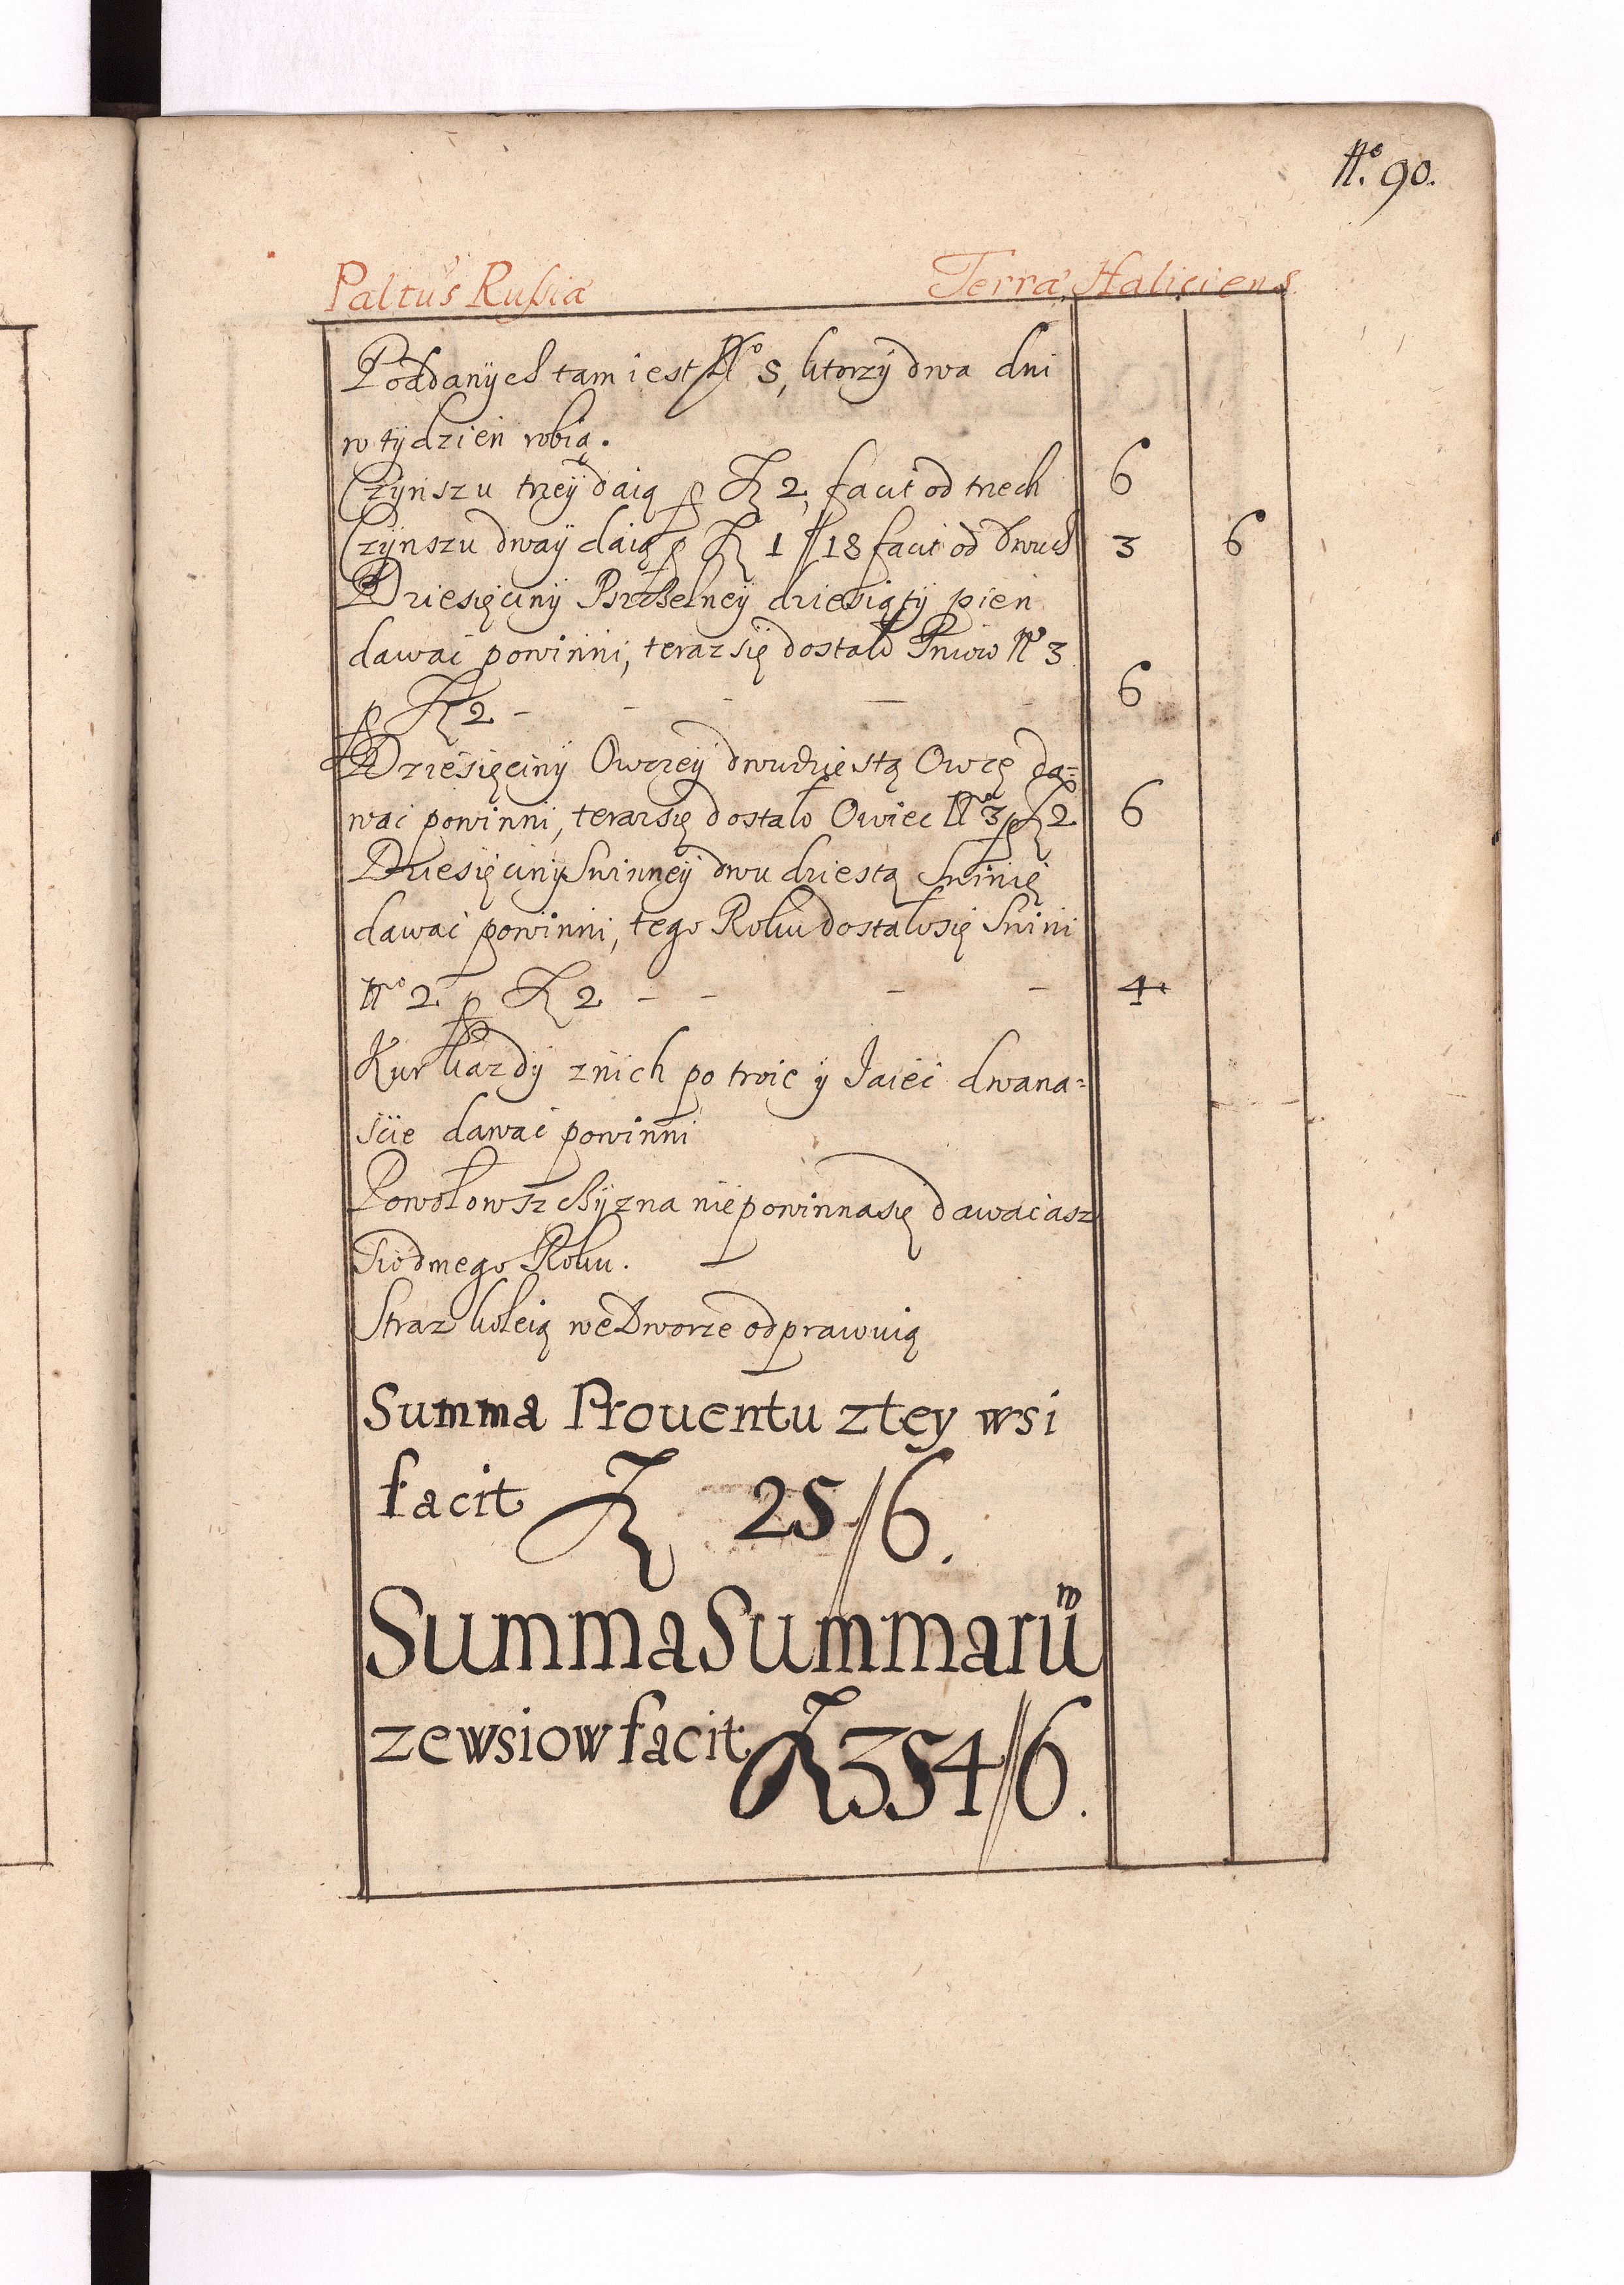 No. 90.
Paltus Rusiæ Terra Haliciens
Poddanych tam iest No 5, ktorzÿ dwa dni
w tÿdzien robią.
Czÿnszu trzeÿ daią p Zł 2, facit od trzech 6
Czÿnszu dwaÿ daią p Zł 1 // 18 facit od dwuch 3 6
Dziesięcinÿ Pszczelneÿ dziesiątÿ pien
dawac powinni, teraz się dostało Pniow No 3
p Zł 2 - - - - - 6
Dziesięcinÿ Owczeÿ dwudziestą Owcę da=
wac powinni, teraz się dostało Owiec No 3 p Zł 2 6
Dziesięcinÿ Swinneÿ dwudziestą Swinię
dawac powinni, tego Roku dostało się Swini
No 2 p Zł 2 - - - - 4
Kur kazdÿ znich po troie ÿ Jaiec dwana=
scie dawac powinni
Powołowszchÿzna niepowinna się dawac asz
Siodmego Roku.
Straz koleią we Dworze odprawuią
Summa Prouentu ztey wsi
facit Zł 25 // 6.
Summa Summarũm
zewsiow facit Zł 354 // 6.